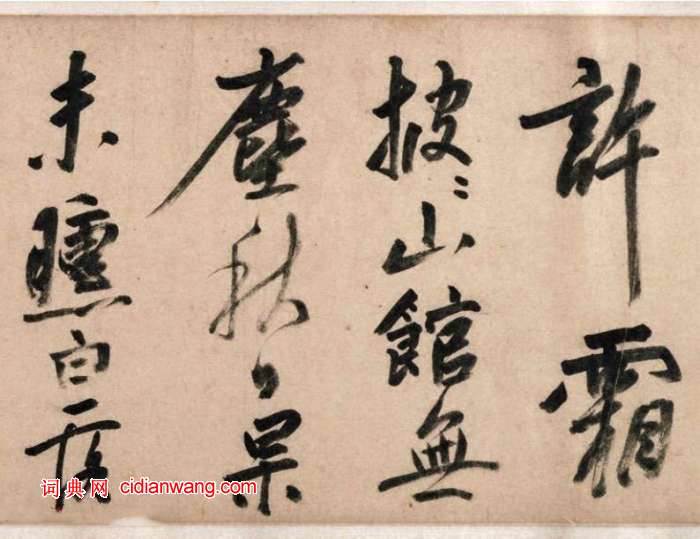 許霜
披〻山館無
塵秋
未曛白
詞典网 cidianwang.com